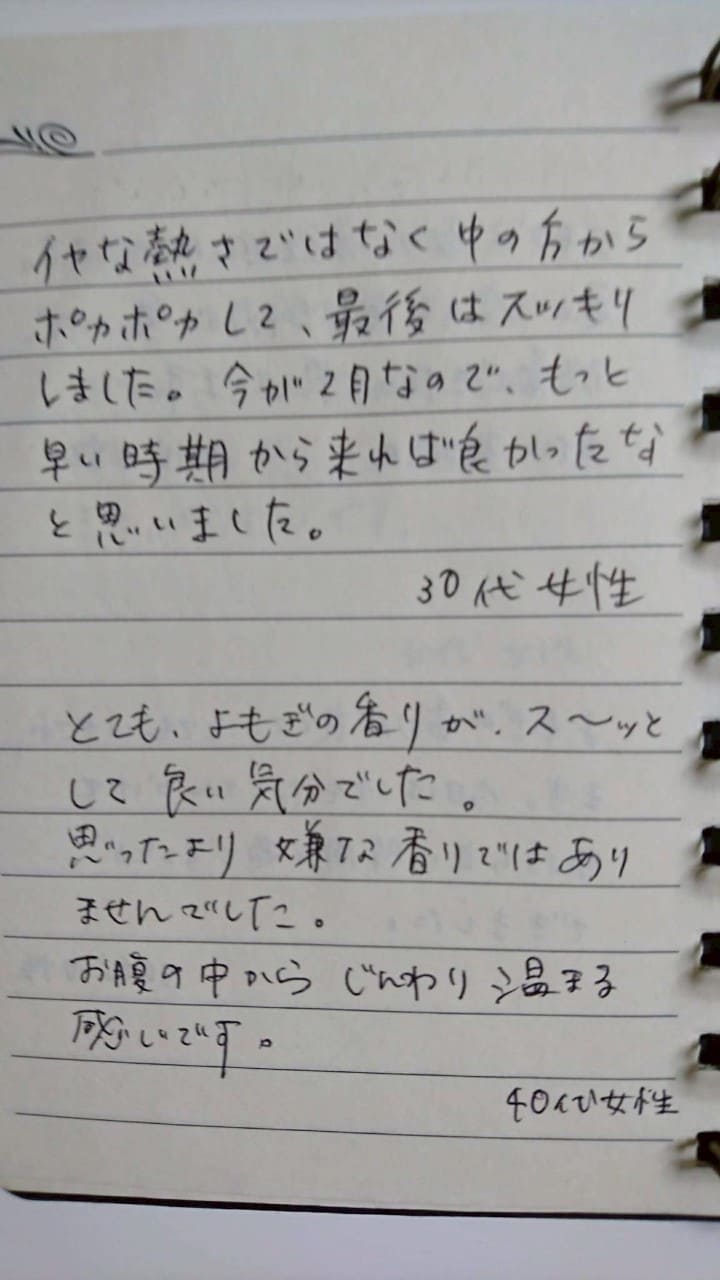 イヤな熱さではなく中の方から
ポカポカして、最後はスッキリ
しました。今が2月なので、もっと
早い時期から来れば良かったな
と思いました。
30代女性
とても、よもぎの香りが、ス〜ッと
して良い気分でした。
思ったより嫌な香りではあり
ませんでした。
お腹の中からじんわり温まる
感じです。
40代女性